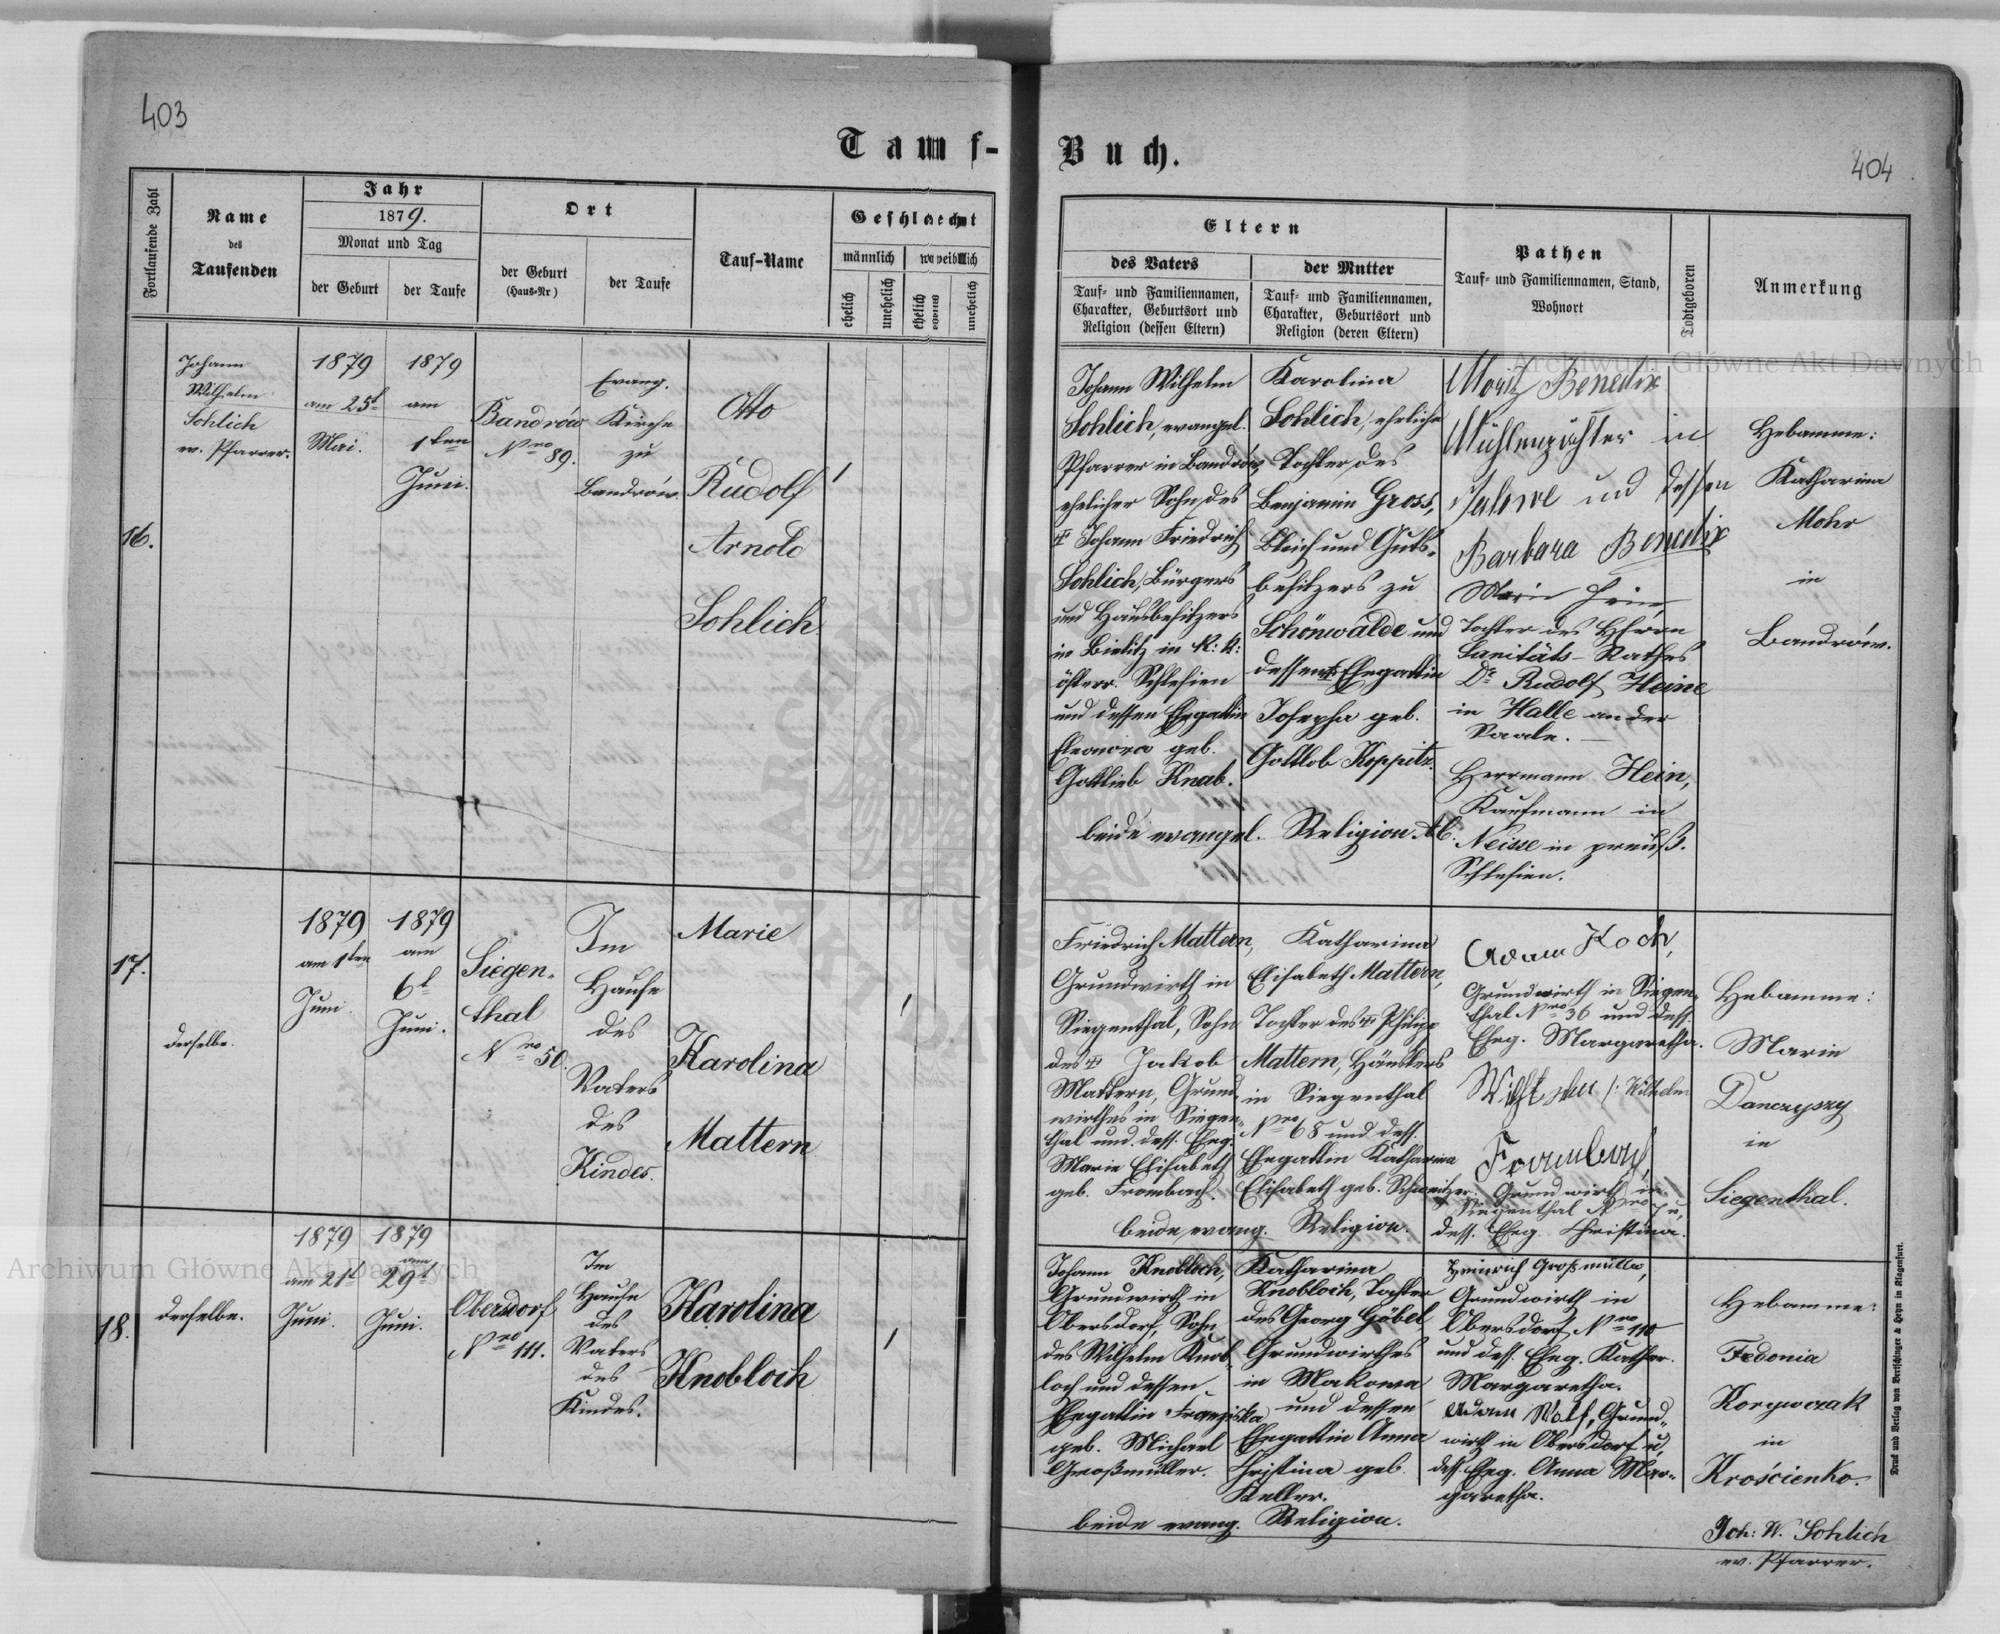 403
Tauf-
Buch.
404
Fortlaufende Zahl
Name
des
Taufenden
Jahr
1879.
Monat und Tag
der Geburt
der Taufe
Ort
der Geburt
(Haus-Nr)
der Taufe
Tauf-Name
Geschlecht
männlich
weiblich
ehelich
unehelich
ehelich
unehelich
Eltern
des Vaters
Tauf- und Familiennamen,
Charakter, Geburtsort und
Religion (dessen Eltern)
der Mutter
Tauf- und Familiennamen,
Charakter, Geburtsort und
Religion (deren Eltern)
Pathen
Tauf- und Familiennamen, Stand,
Wohnort
Todtgeboren
Anmerkung
16.
Johann
Wilhelm
Sohlich
ev. Pfarrer.
1879
am 25t
Mai.
1879
am
1ten
Juni.
Bandrów
Nro 89.
Evang.
Kirche
zu
Bandrów.
Otto
Rudolf
Arnold
Sohlich
1
Johann Wilhelm
Sohlich, evangel.
Pfarrer in Bandrów
ehelicher Sohn des
☩ Johann Friedrich
Sohlich, Bürgers
und Hausbesitzers
in Bielitz in k: k:
österr. Schlesien
und dessen Ehegattin
Eleonora geb.
Gottlieb Knab.
Karolina
Sohlich, eheliche
Tochter des
Benjamin Gross,
Bleich und Guts-
besitzers zu
Schönwalde und
dessen Ehegattin
Josepha geb.
Gottlob Koppitz.
beide evangel. Religion AC.
Moritz Benedix
Mühlenpächter in
und dessen
Barbara Benedix
Marie Heine
Tochter des Herrn
Sanitäts-Rathes
Dr Rudolf Heine
in Halle an der
Saale.
Herrmann Hein,
Kaufmann in
Neisse in preuß.
Schlesien.
Hebamme:
Katharina
Mohr
in
Bandrów.
17.
derselbe.
1879
am 1ten
Juni.
1879
am
6t
Juni.
Siegen-
thal
Nro 50.
Im
Hause
des
Vaters
des
Kindes.
Marie
Karolina
Mattern
1
Friedrich Mattern,
Grundwirth in
Siegenthal, Sohn
des ☩ Jakob
Mattern, Grund-
wirthes in Siegen-
thal und dess. Eheg.
Marie Elisabeth
geb. Frombach.
Katharina
Elisabeth Mattern,
Tochter des ☩ Philipp
Mattern, Häuslers
in Siegenthal
Nro 68 und dess.
Ehegattin Katharina
Elisabeth geb. Schweitzer.
beide evang. Religion.
Adam Koch,
Grundwirth in Siegen-
thal Nro 36 und dess.
Eheg. Margaretha.
/: Wilhelm
Frombach,
Grundwirth in
Siegenthal Nro u.
dess. Eheg. Christina.
Hebamme:
Marie
Danczyszy
in
Siegenthal.
18.
derselbe.
1879
am 21t
Juni.
1879
am
29t
Juni.
Obersdorf
Nro 111.
Im
Hause
des
Vaters
des
Kindes.
Karolina
Knobloch
1
Johann Knobloch,
Grundwirth in
Obersdorf, Sohn
des Wilhelm Knob-
loch und dessen
Ehegattin Franziska
geb. Michael
Großmüller.
Katharina
Knobloch, Tochter
des Georg Göbel
Grundwirthes
in Makowa
und dessen
Ehegattin Anna
Christina geb.
Keller.
beide evang. Religion.
Heinrich Großmüller,
Grundwirth in
Obersdorf Nro 110
und dess. Eheg. Kathar.
Margaretha.
Adam Wolf, Grund-
wirth in Obersdorf u.
dess. Eheg. Anna Mar-
garetha.
Hebamme:
Fedonia
Korywczak
in
Krościenko.
Joh: W. Sohlich
ev. Pfarrer.
Druck und Verlag von Bertschinger & Heyn in Klagenfurt.
Archiwum Główne Akt Dawnych
Archiwum Główne Akt Dawnych